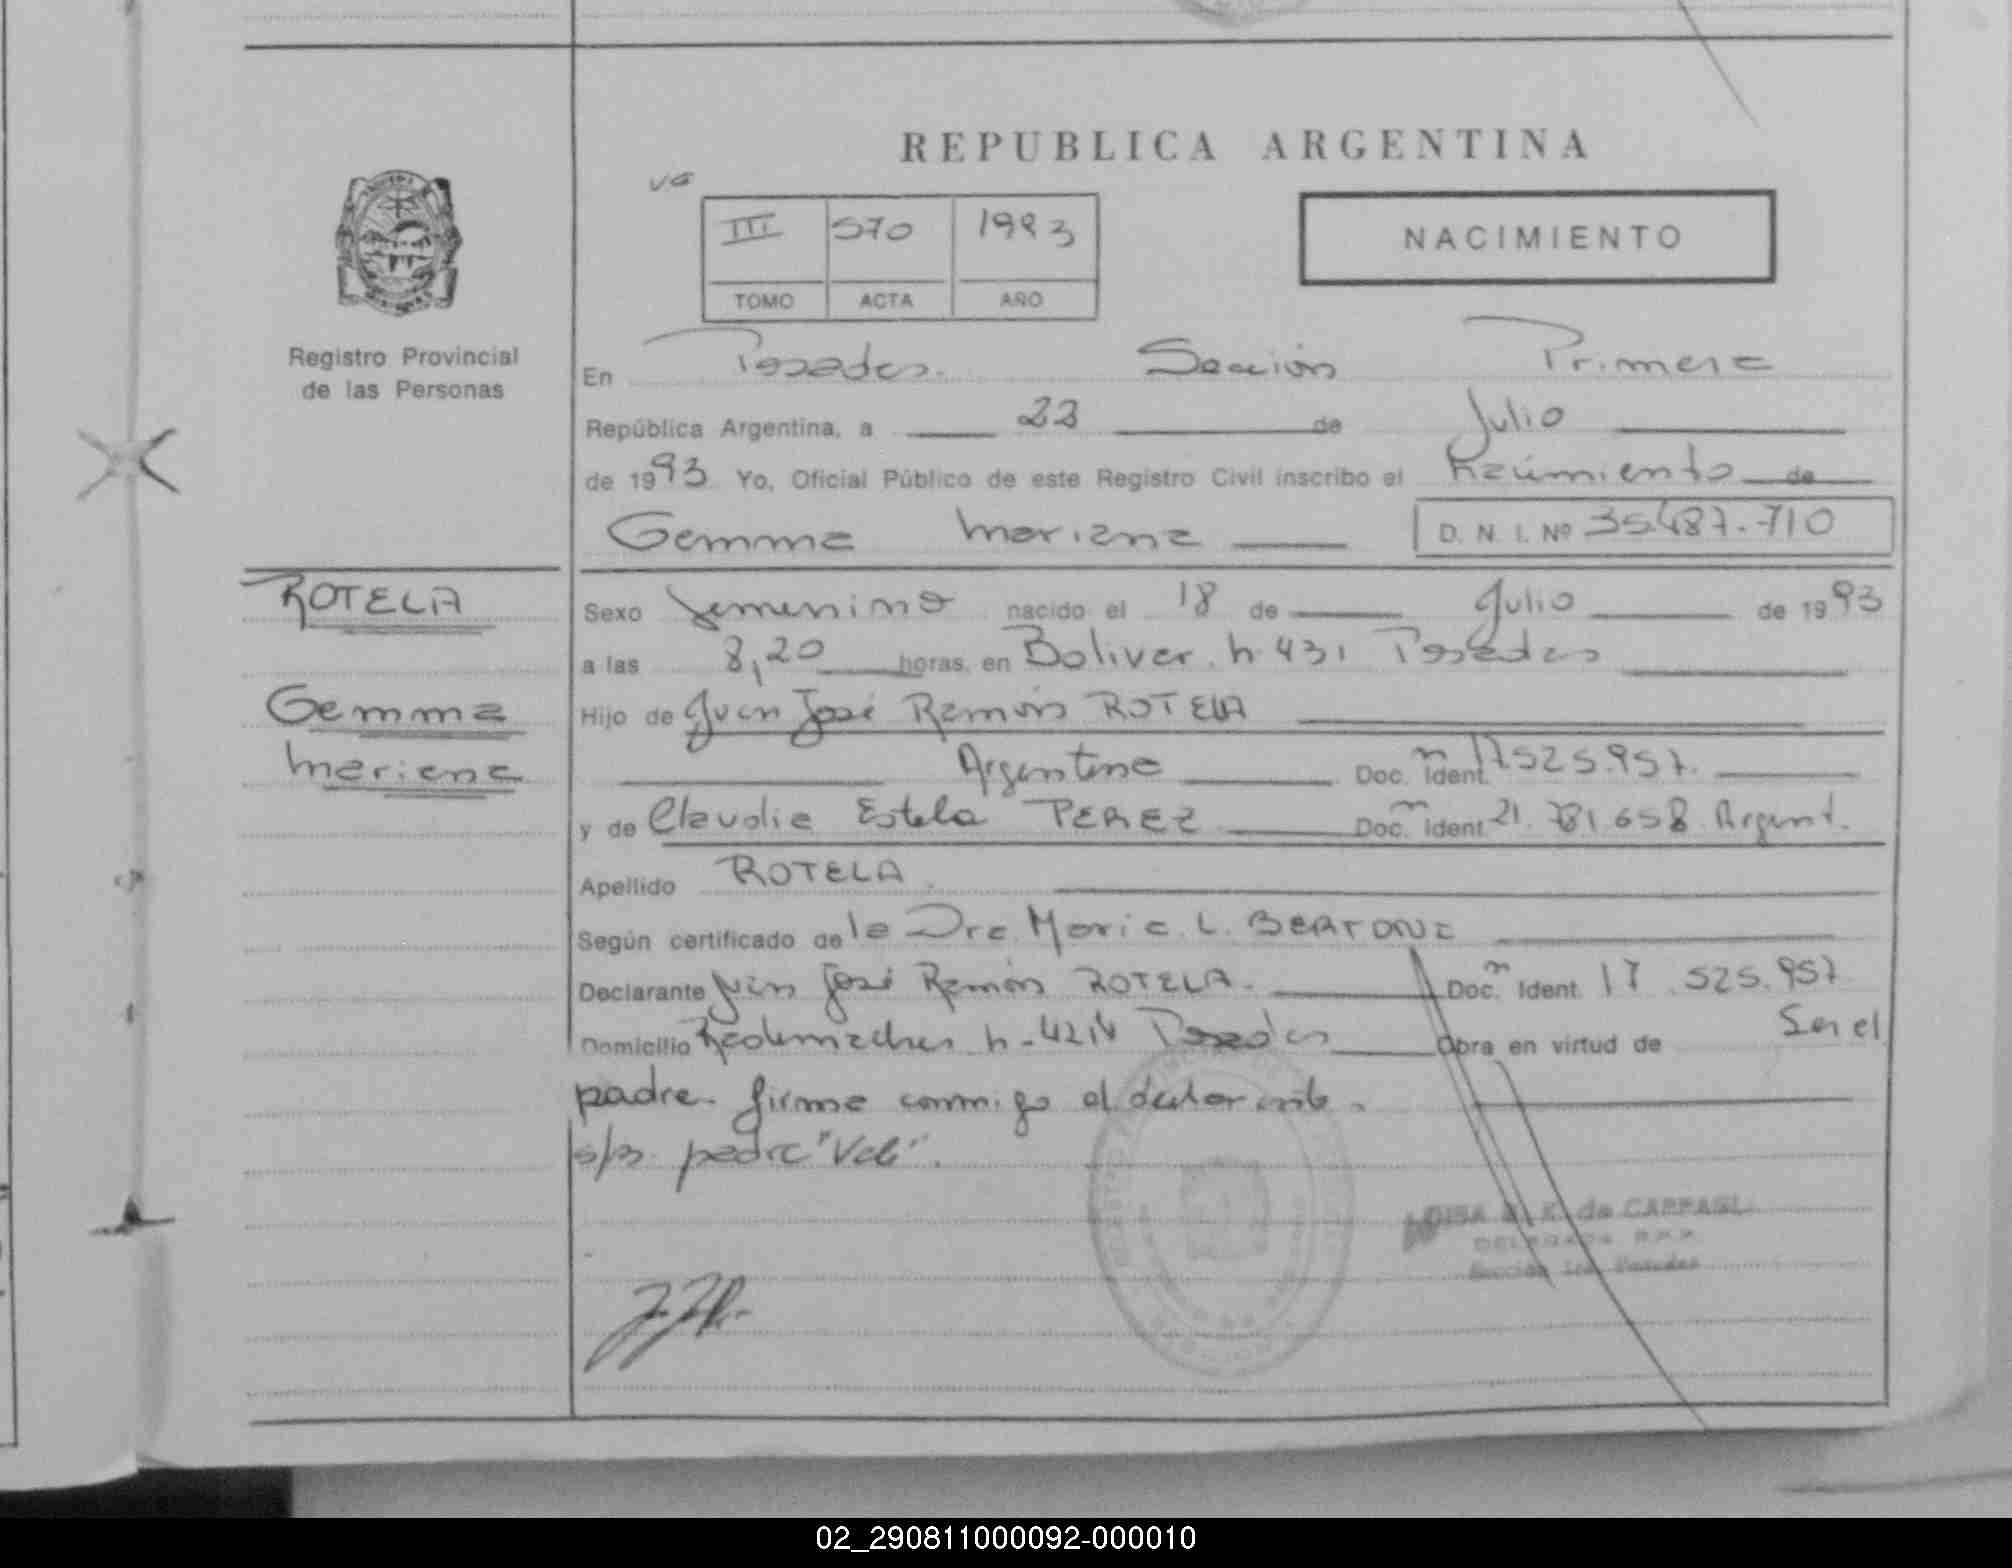 REPUBLICA ARGENTINA
va
III 570 1993
TOMO ACTA AÑO
NACIMIENTO
Registro Provincial
de las Personas
En Posadas. Sección Primera
República Argentina, a 23 de Julio
de 1993 Yo, Oficial Público de este Registro Civil inscribo el Nacimiento de
Gemma Mariana D. N. I. Nº 35.487.710
ROTELA
Gemma
Mariana
Sexo femenino nacido el 18 de Julio de 1993
a las 8,20 horas, en Bolivar. n. 431 Posadas
Hijo de Juan José Ramón ROTELA
Argentina Doc. Ident. n 17.525.957.
y de Claudia Estela PEREZ Doc. Ident. n 21.781.658 Argent.
Apellido ROTELA.
Según certificado de la Dra. Maria. L. BERTONI
Declarante Juan José Ramón ROTELA. Doc. n Ident. 17.525.957
Domicilio n. Posadas Obra en virtud de Ser el
padre. firma conmigo el declarante.
s/r padre "Vale".
de
DELEGADA R.P.P.
Sección 1ra. Posadas
02_290811000092-000010